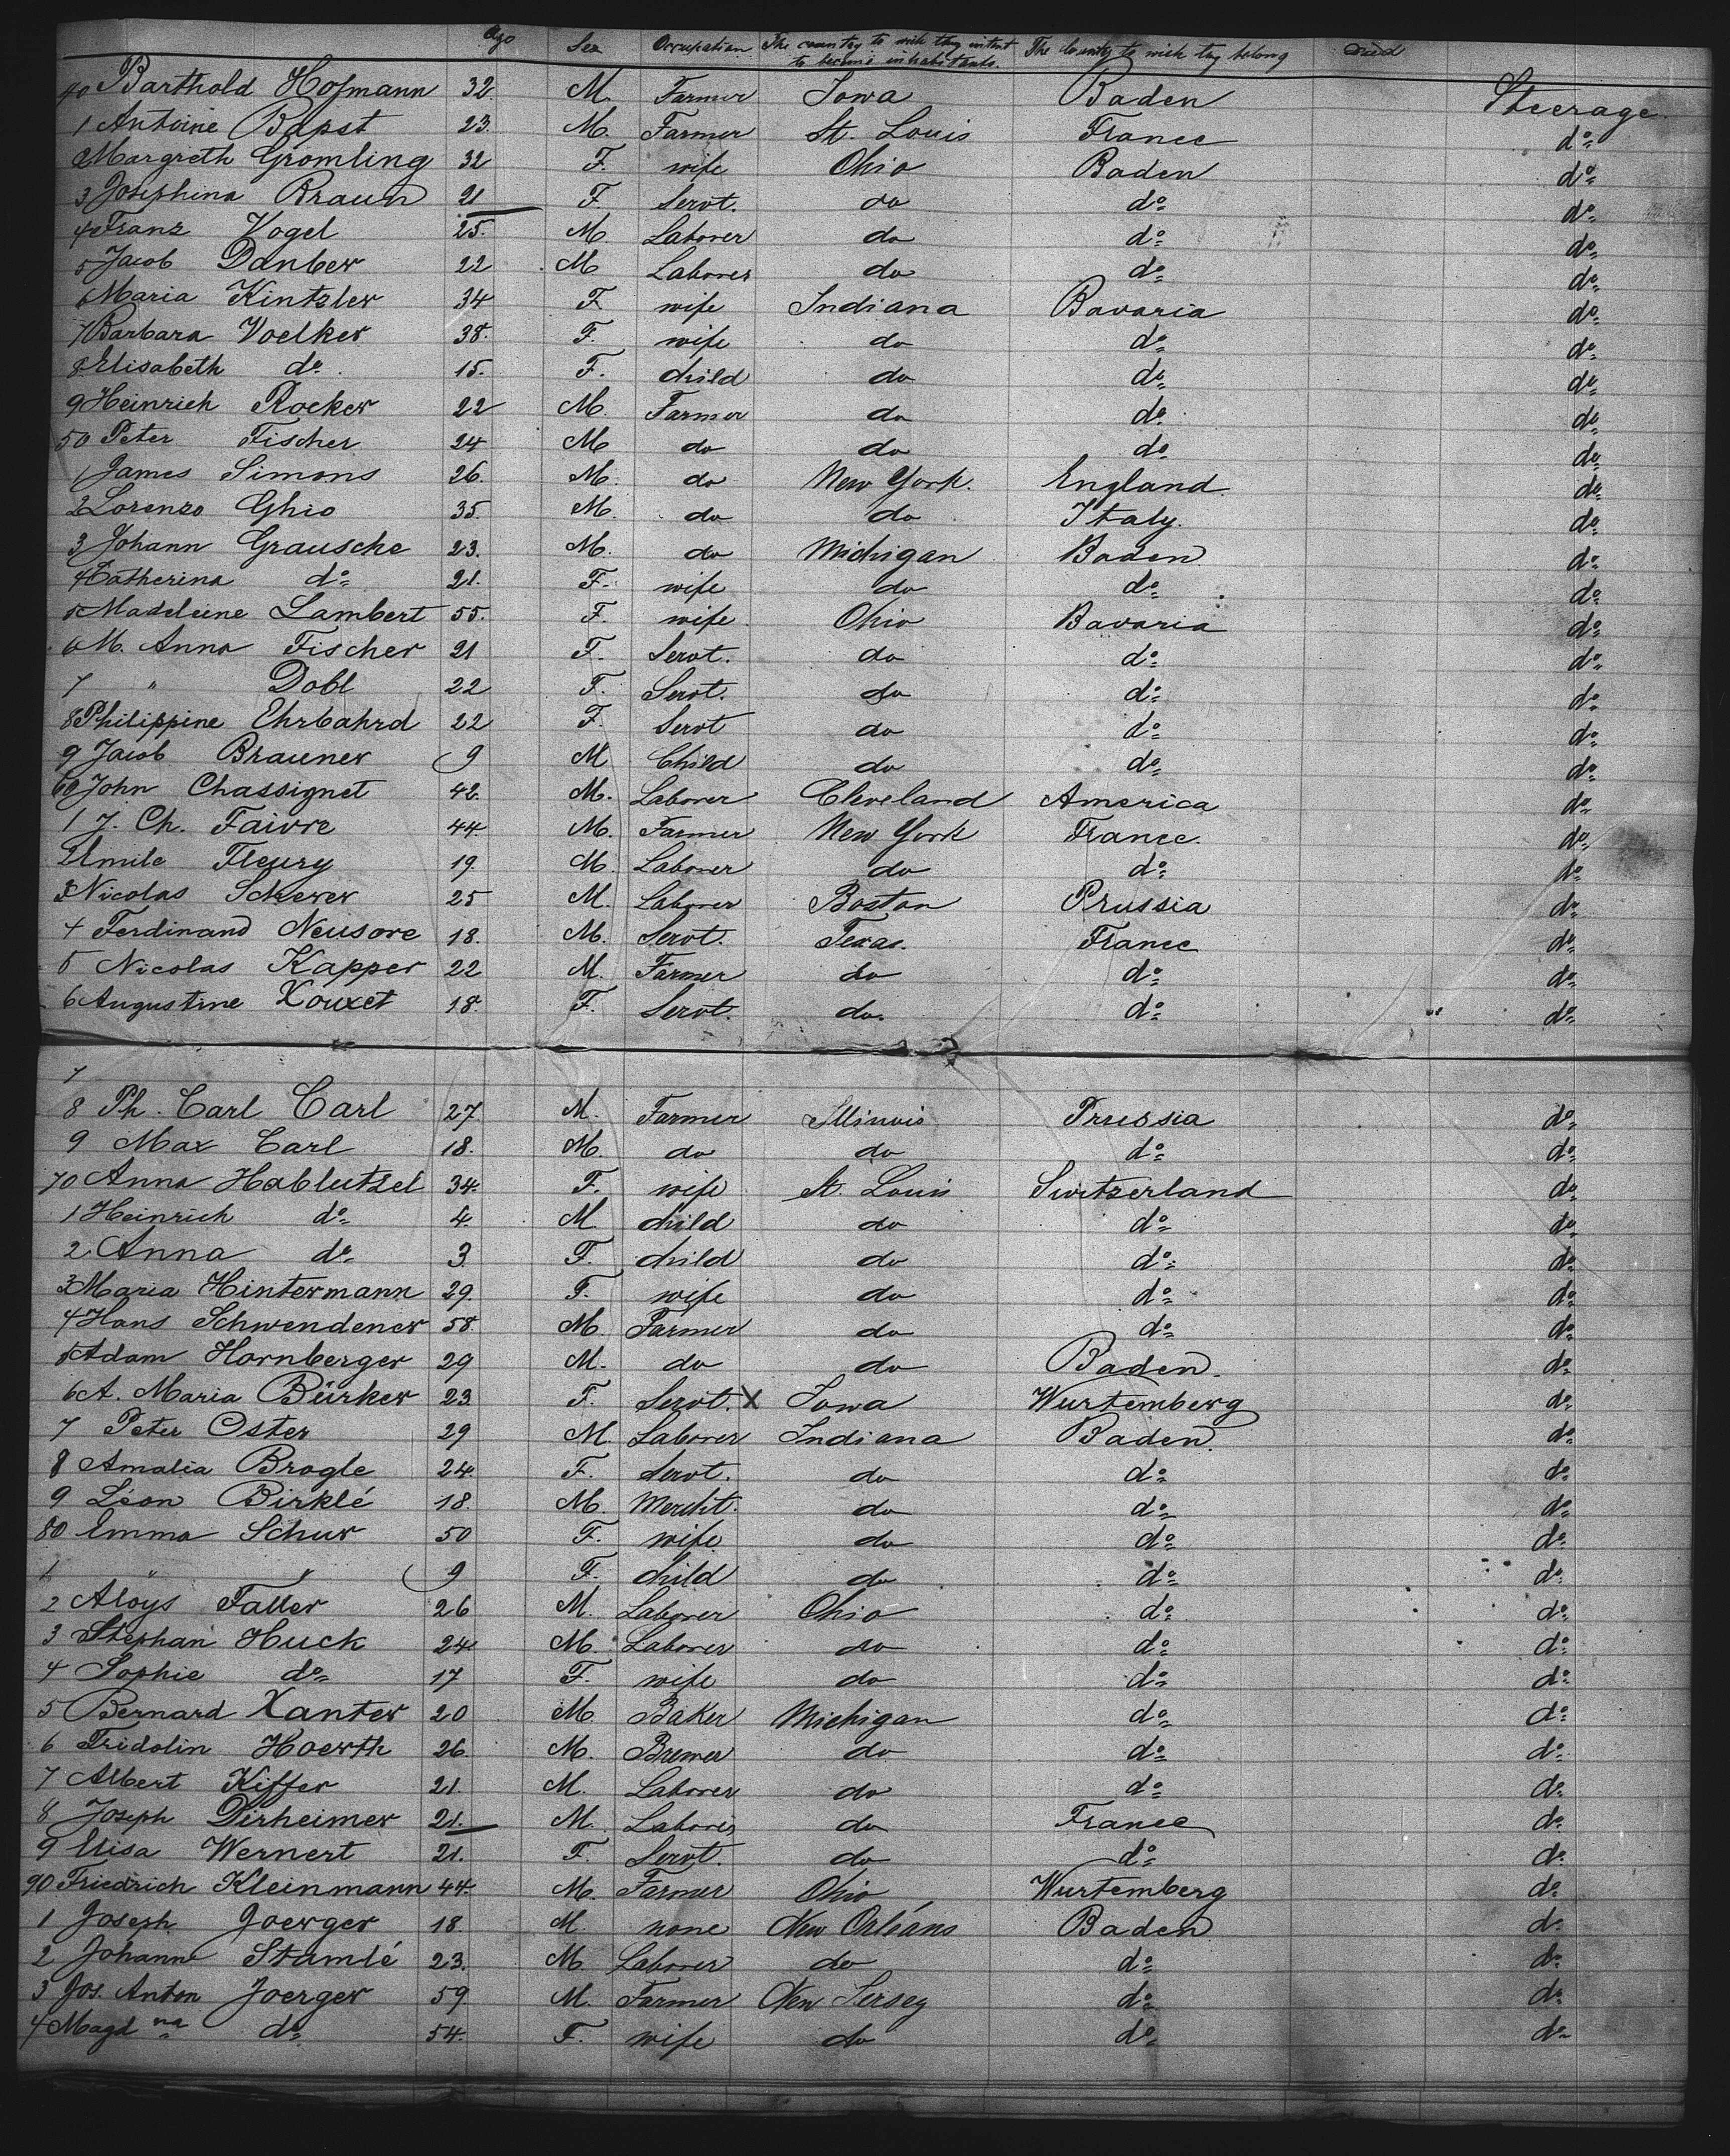 Age Sex Occupation The country to wich they intent to become inhabitants. The Country to wich they belong Died
40 Barthold Hofmann 32. M. Farmer Iowa Baden Steerage.
1 Antoine Bapst 23. M. Farmer St. Louis France do
2 Margreth Gromling 32 F. wife Ohio Baden do
3 Josephina Braun 21 F. Servt. do do do
4 Franz Vogel 25. M. Laborer do do do
5 Jacob Danber 22 M Laborer do do do
6 Maria Kintzler 34 F. wife Indiana Bavaria do
7 Barbara Voelker 38. F. wife do do do
8 Elisabeth do 15. F. child do do do
9 Heinrich Rocker 22 M. Farmer do do do
50 Peter Fischer 24 M do do do do
1 James Simons 26. M. do New York England do
2 Lorenzo Ghio 35. M. do do Italy. do
3 Johann Grausche 23. M. do Michigan Baden do
4 Catherina do 21. F. wife do do do
5 Madeleine Lambert 55. F. wife Ohio Bavaria do
6 M. Anna Fischer 21 F. Servt. do do do
7 " Dobl 22 F. Servt. do do do
8 Philippine Ehrbahrd 22 F. Servt do do do
9 Jacob Brauner 9 M Child do do do
60 John Chassignet 42. M. Laborer Cleveland America do
1 J. Ch. Faivre 44 M. Farmer New York France. do
2 Emile Fleury 19. M. Laborer do do do
3 Nicolas Scherer 25 M. Laborer Boston Prussia do
4 Ferdinand Neusore 18. M. Servt. Texas. France do
5 Nicolas Kapper 22 M. Farmer do do do
6 Augustine Xouxet 18. F. Servt. do. do do
7
8 Ph. Carl Carl 27. M. Farmer Illinois Prussia do
9 Max Carl 18. M. do do do do
70 Anna Hablutzel 34. F. wife St. Louis Switzerland do
1 Heinrich do 4. M child do do do
2 Anna do 3 F. child do do do
3 Maria Hintermann 29. F. wife do do do
4 Hans Schwendener 58. M. Farmer do do do
5 Adam Hornberger 29 M. do do Baden. do
6 A. Maria Bürker 23. F. Servt. X Iowa Wurtemberg do
7 Peter Oster 29 M. Laborer Indiana Baden. do
8 Amalia Brogle 24. F. Servt. do do do
9 Léon Birklé 18. M. Mercht. do do do
80 Emma Schur 50 F. wife do do do
1 " " 9 F. child do do do
2 Aloÿs Faller 26 M. Laborer Ohio do do
3 Stephan Huck 24 M Laborer do do do
4 Sophie do 17 F. wife do do do
5 Bernard Xanter 20 M. Baker Michigan do do
6 Fridolin Hoerth 26. M. Brewer do do do
7 Albert Kiffer 21. M. Laborer do do do
8 Joseph Dirheimer 21. M. Laborer do France do
9 Elisa Wernert 21. F. Servt. do do do
90 Friedrich Kleinmann 44. M. Farmer Ohio Wurtemberg do
1 Joseph Joerger 18. M. none New Orléans Baden do
2 Johann Stamlé 23. M. Laborer do do do
3 Jos. Anton Joerger 59. M. Farmer New Jersey do do
4 Magdna do 54. F. wife do do do